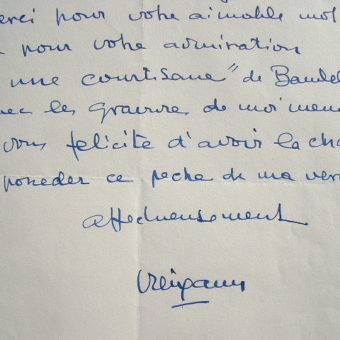 erci pour votre aimable mot
pour votre admiration
une courtisane" de Baudel
vec les gravures de moi meme
vous felicite d'avoir la cha
posseder ce peche de ma ver
affectueusement